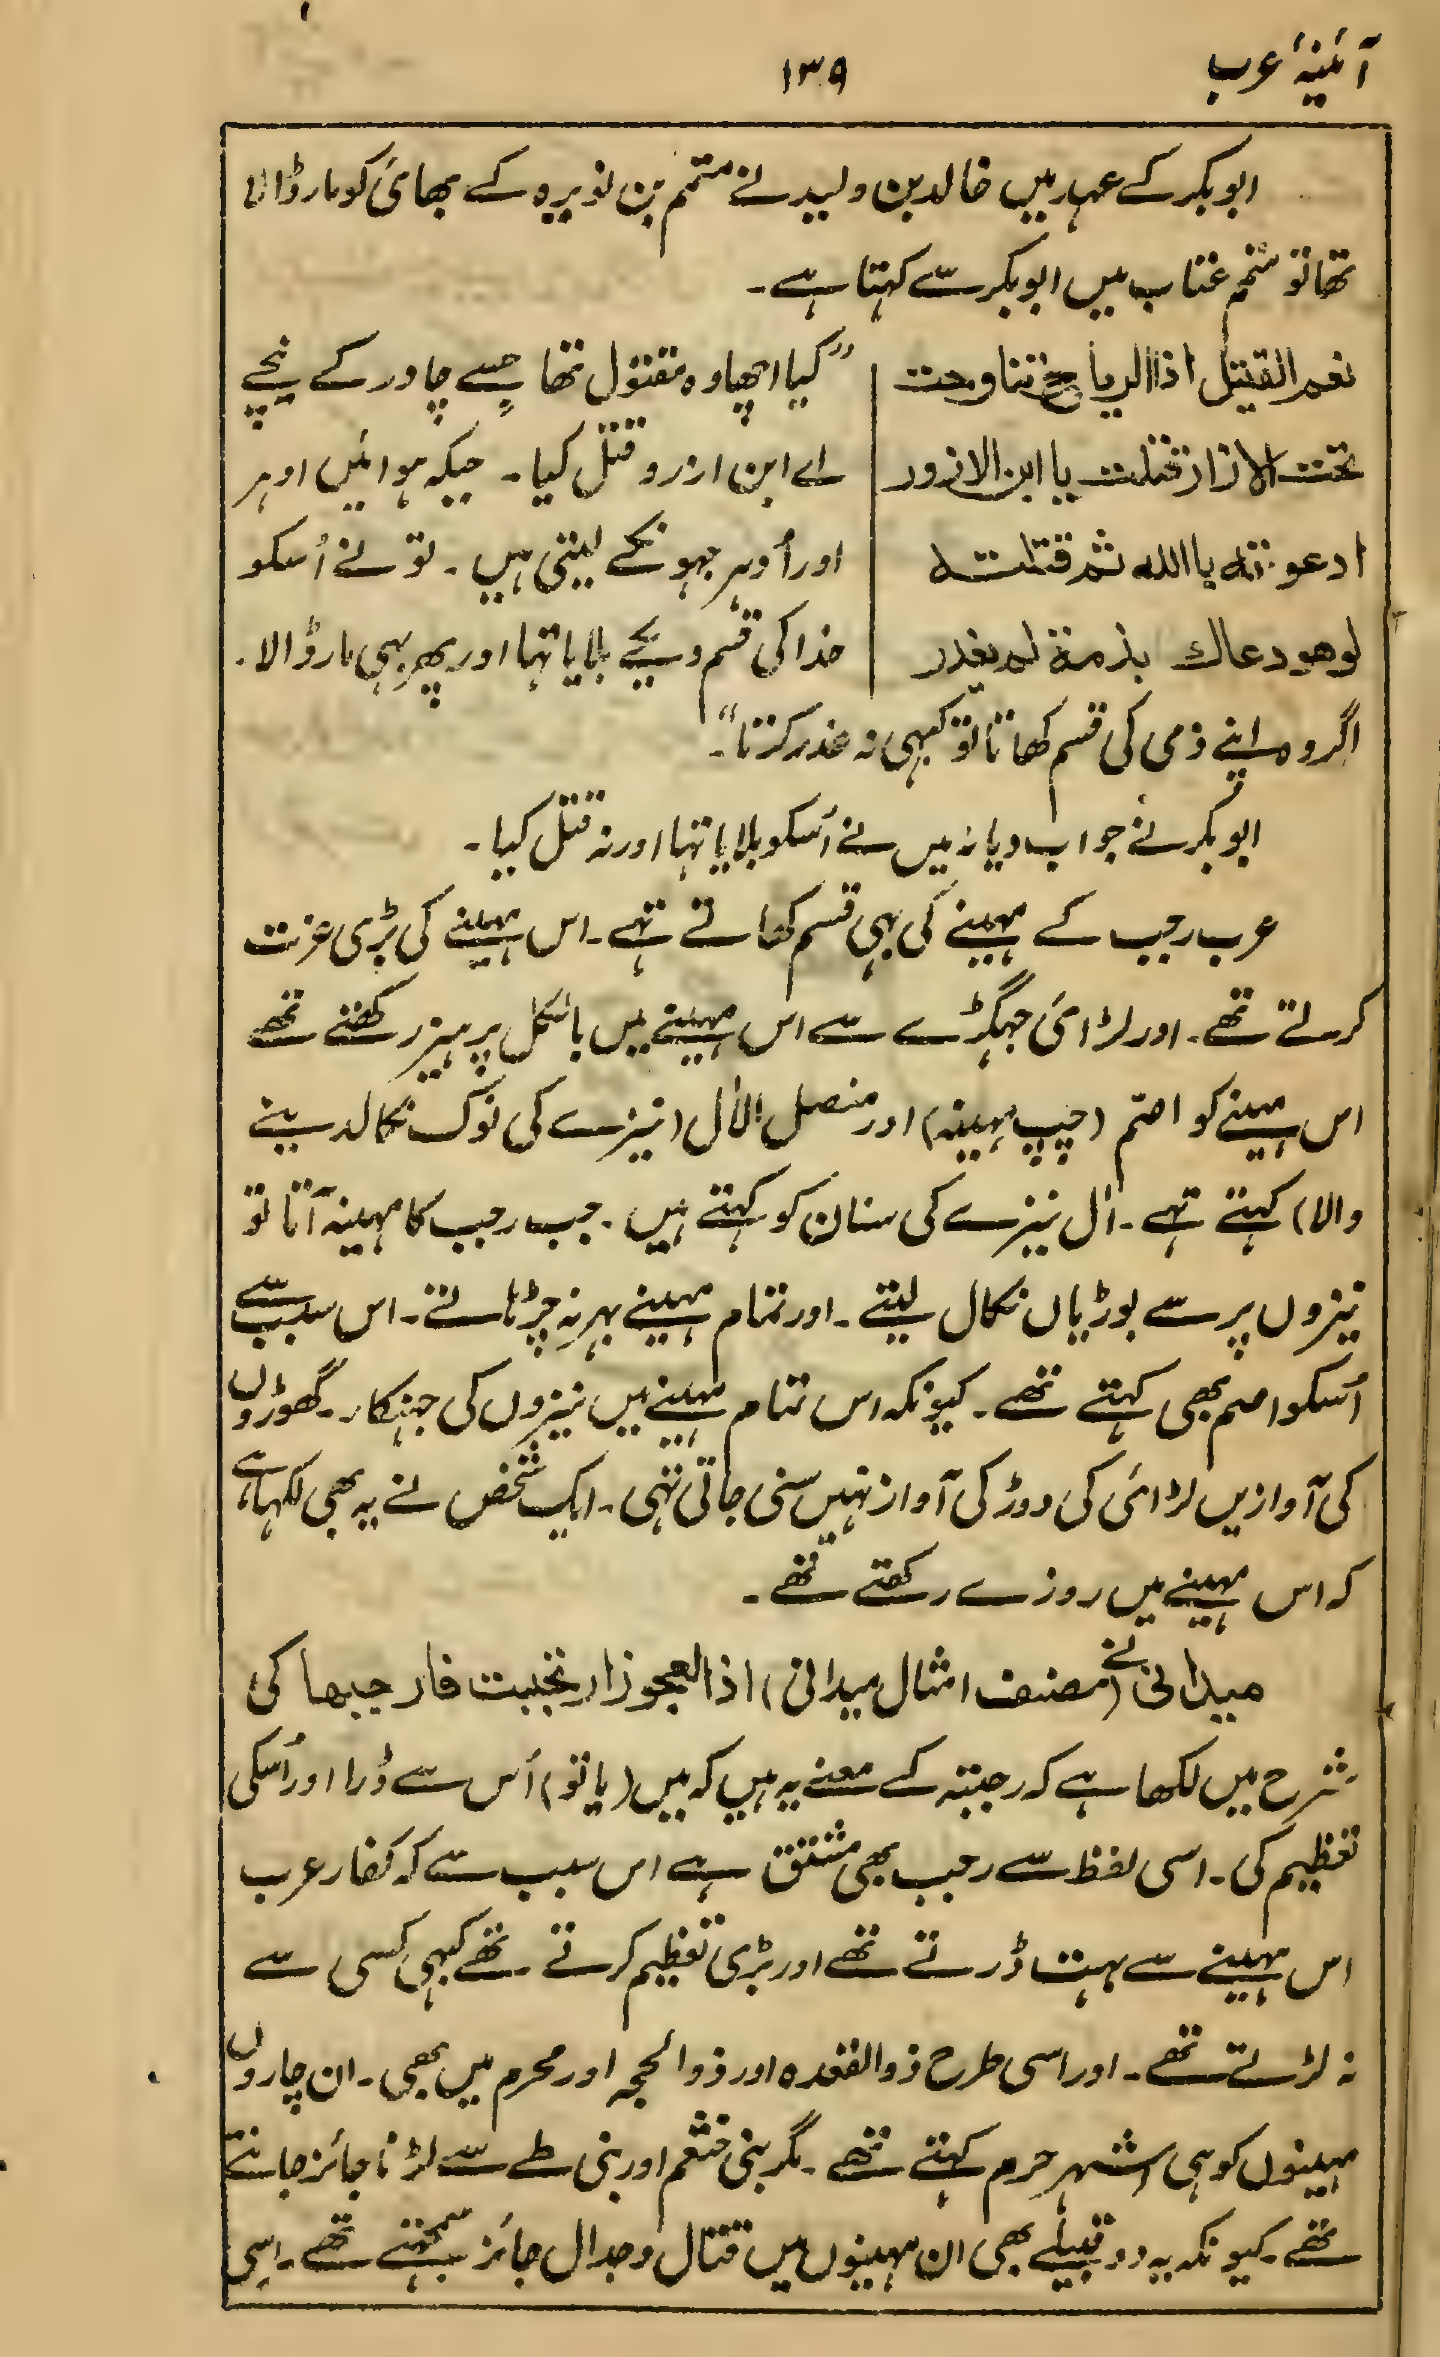 آئینۂ عرب
۱۳۹
ابوبکر کے عہد میں خالد بن ولید نے متمم بن نویرہ کے بھائی کو مار ڈالا
تھا تو متمم عتاب میں ابوبکر سے کہتا ہے۔
نعم القتیل اذا الریاح تناوحت
تحت الازار قتلت یا ابن الازور
ادعوتہ باللہ ثم قتلتہ
لو هو دعاك بذمة لم یغدر
”کیا اچھا وہ مقتول تھا جسے چادر کے نیچے
اے ابن ازرو قتل کیا۔ جبکہ ہوائیں اوہر
اور اُوہر جہونکے لیتی ہیں۔ تو نے اُسکو
خدا کی قسم دیکے بلایا تہا اور پھر بہی مار ڈالا۔
اگر وہ اپنے ذمی کی قسم کھاتا تو کبہی نہ غدر کرتا“۔
ابوبکر نے جواب دیا نہ میں نے اُسکو بلایا تہا اور نہ قتل کیا۔
عرب رجب کے مہینے کی بہی قسم کھاتے تہے۔ اس مہینے کی بڑی عزت
کرتے تھے۔ اور لڑائی جہگڑے سے اس مہینے میں بالکل پرہیز رکھتے تھے
اس مہینے کو اصم (چپ مہینہ) اور منصل الاُل (نیزے کی نوک نکالدینے
والا) کہتے تہے۔ اُل نیزے کی سنان کو کہتے ہیں۔ جب رجب کا مہینہ آتا تو
نیزوں پر سے بوڑیاں نکال لیتے۔ اور تمام مہینے بہر نہ چڑہاتے۔ اس سبب سے
اُسکو اصم بھی کہتے تھے۔ کیونکہ اس تمام مہینے میں نیزوں کی جہنکار۔ گھوڑوں
کی آوازیں لڑائی کی دوڑ کی آواز نہیں سنی جاتی تہی۔ ایک شخص نے یہ بھی لکہا ہے
کہ اس مہینے میں روزے رکھتے تھے۔
میدانی نے (مصنف امثال میدانی) اذا العجوز ارتجبت فارجبها کی
شرح میں لکھا ہے کہ رجبتہ کے معنے یہ ہیں کہ میں (یا تو) اُس سے ڈرا اور اُسکی
تعظیم کی۔ اسی لفظ سے رجب بھی مشتق ہے اس سبب سے کہ کفار عرب
اس مہینے سے بہت ڈرتے تھے اور بڑی تعظیم کرتے۔ تھے کبہی کسی سے
نہ لڑتے تھے۔ اور اسی طرح ذوالقعدہ اور ذوالحجہ اور محرم میں بھی۔ ان چاروں
مہینوں کو ہی اشہر حرم کہتے تھے۔ مگر بنی خثعم اور بنی طے سے لڑنا جائز جانتے
تھے۔ کیونکہ یہ دو قبیلے بھی ان مہینوں میں قتال وجدال جائز سمجہتے تھے۔ اسی